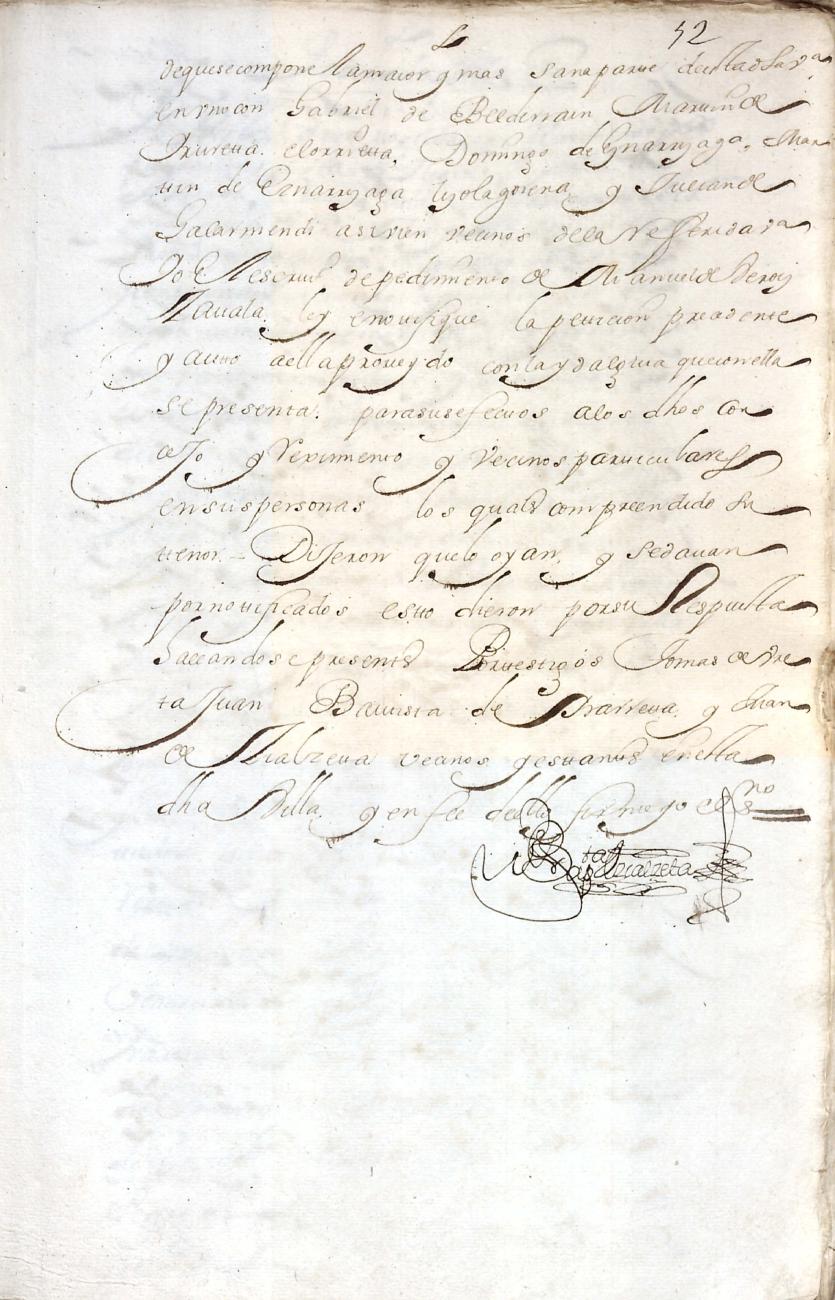 52
de que se compone la maior y mas sana parte de
en vno con Gabriel de Belderrain Martin de
Yrureta elorrieta, Domingo de Gnarryaga, Mar
tin de Eznarryaga y Julian de
Galarmendi asi vien vecinos de la
Jo el escriu° de pedimiento de Manuel de Veroiz
Zauala ley e notifique la peticion precedente
y auto a ella proveydo con la ydalguia que con ella
se presenta para sus efectos a los dhos con
cejo y Reximiento y vecinos particulares
en sus personas los quales compreendido su
thenor = Dijeron que lo oyan y se dauan
por notificados esto dieron por su Respuesta
hallandose presentes Por testigos Tomas de Vre
ta Juan Bautista de Ybarreta y Juan
de Vzalzeta vecinos y estantes en esta
dha Villa y en fee dello firme yo el ss^no =
Bap^ta Vzcalzeta